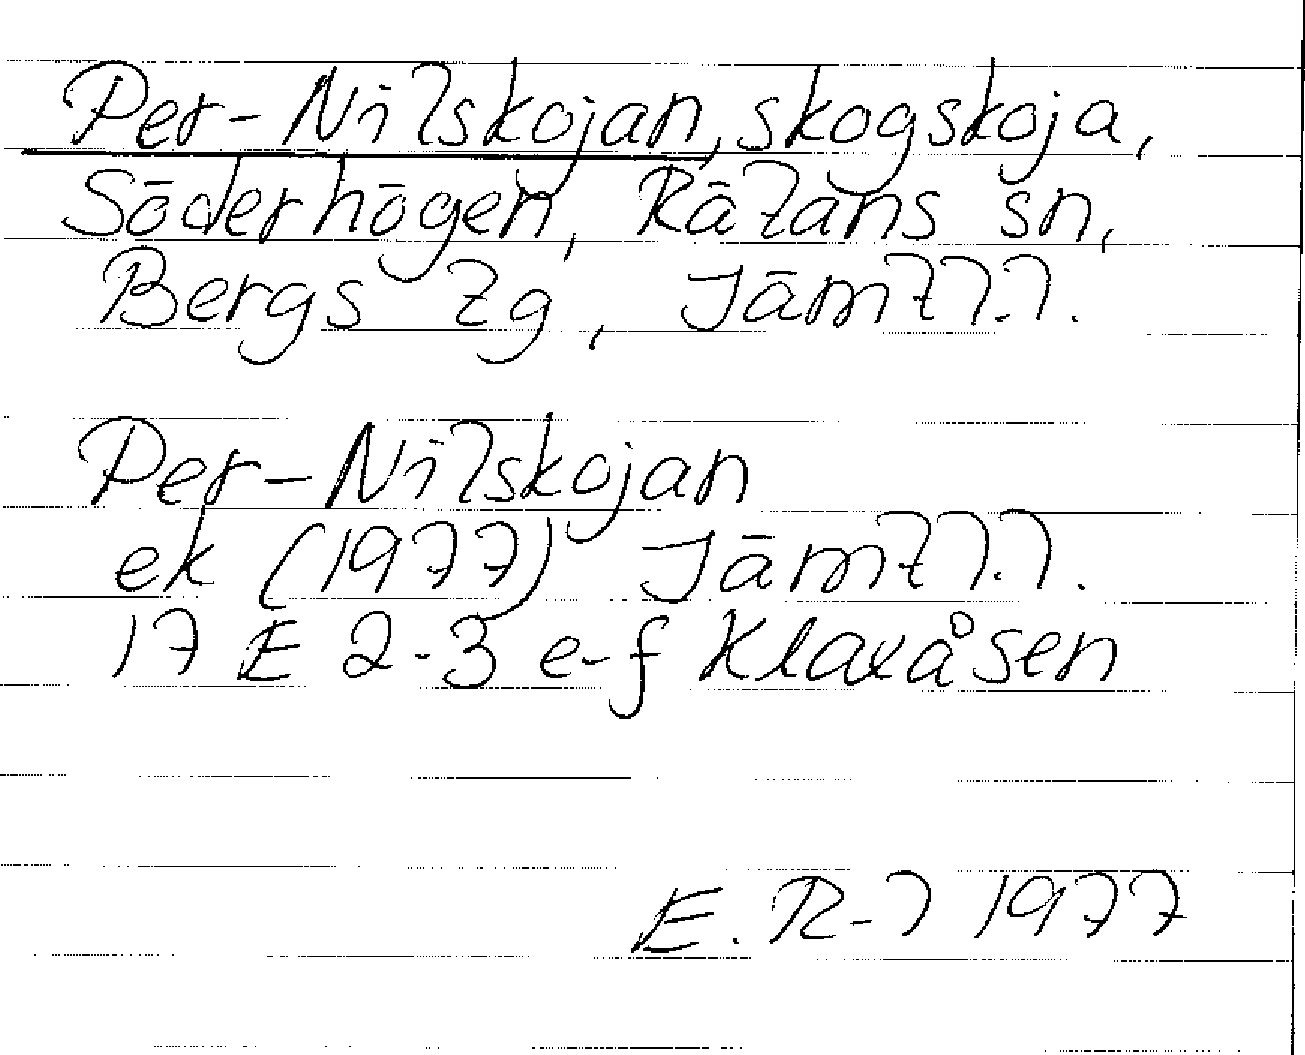 Per-Nilskojan, skogskoja,
Söderhögen, Rätans sn,
Bergs tg, Jämtl.l.
Per-Nilskojan
ek (1977) Jämtl.l.
17 E 2-3 e-f Klaxåsen
E.R-l 1977